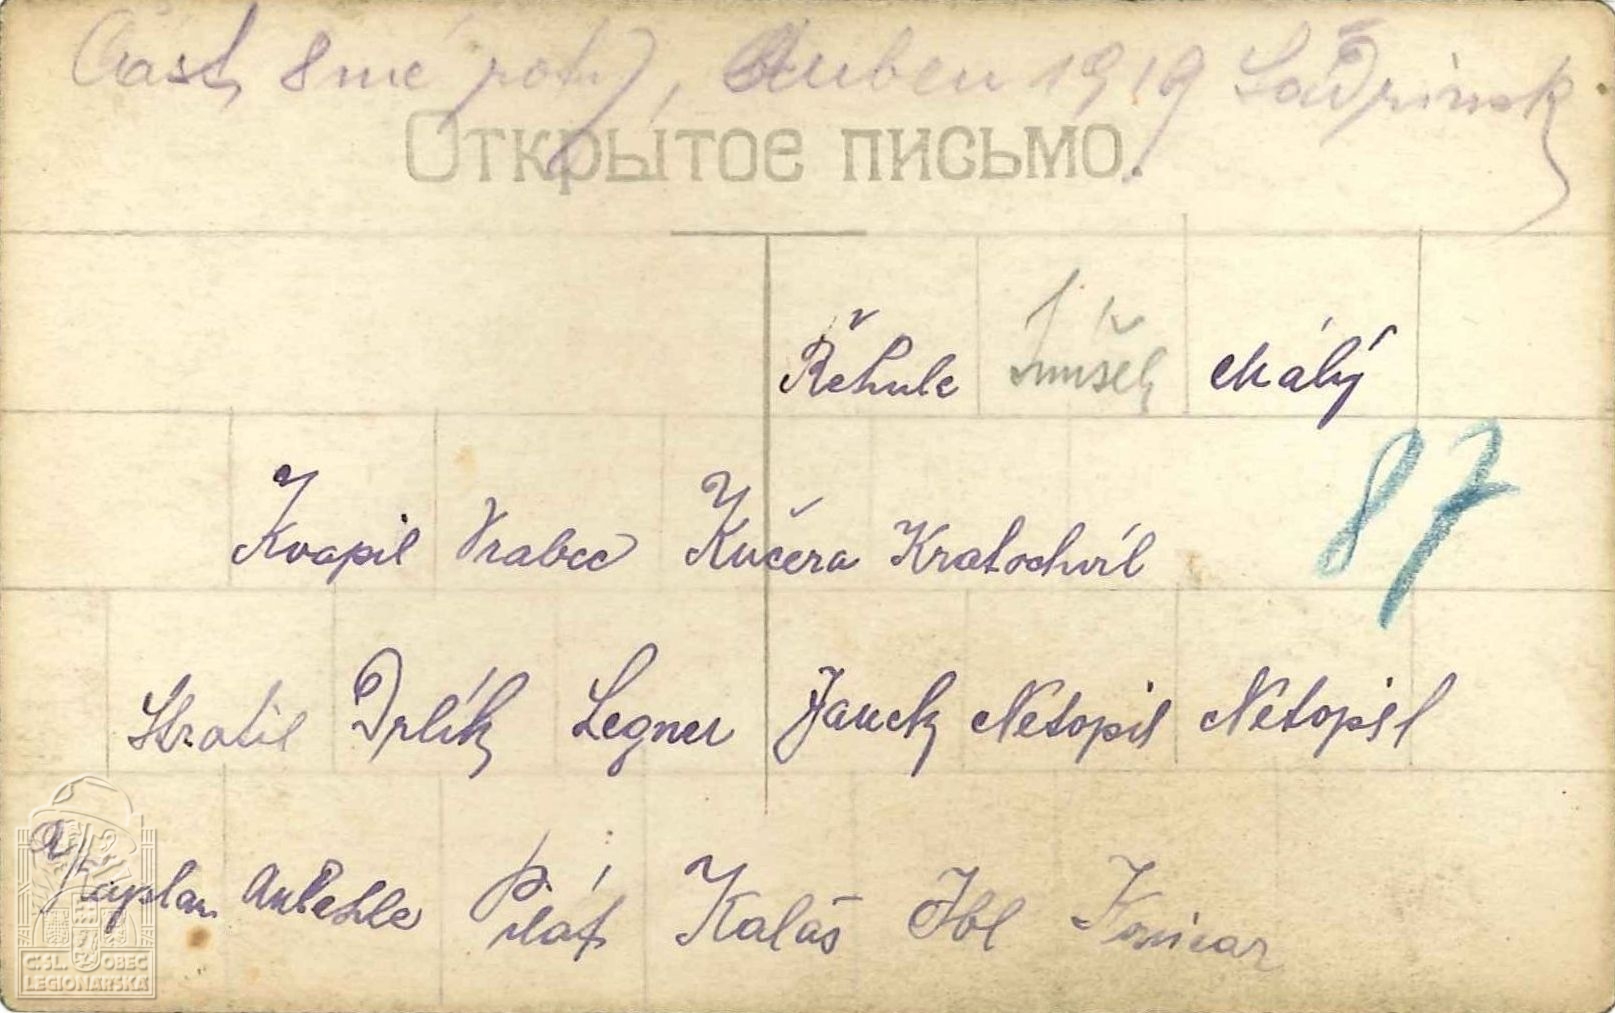 Část 8mé roty, Duben 1919 Šadrinsk
Открытое письмо.
Řehule Málý
87
Kvapil Vrabec Kučera Kratochvíl
Stratil Drlík Legner Janek Netopil Netopil
Kaplan Pilát Kaláš Ibl
ČSL. OBEC
LEGIONÁŘSKÁ